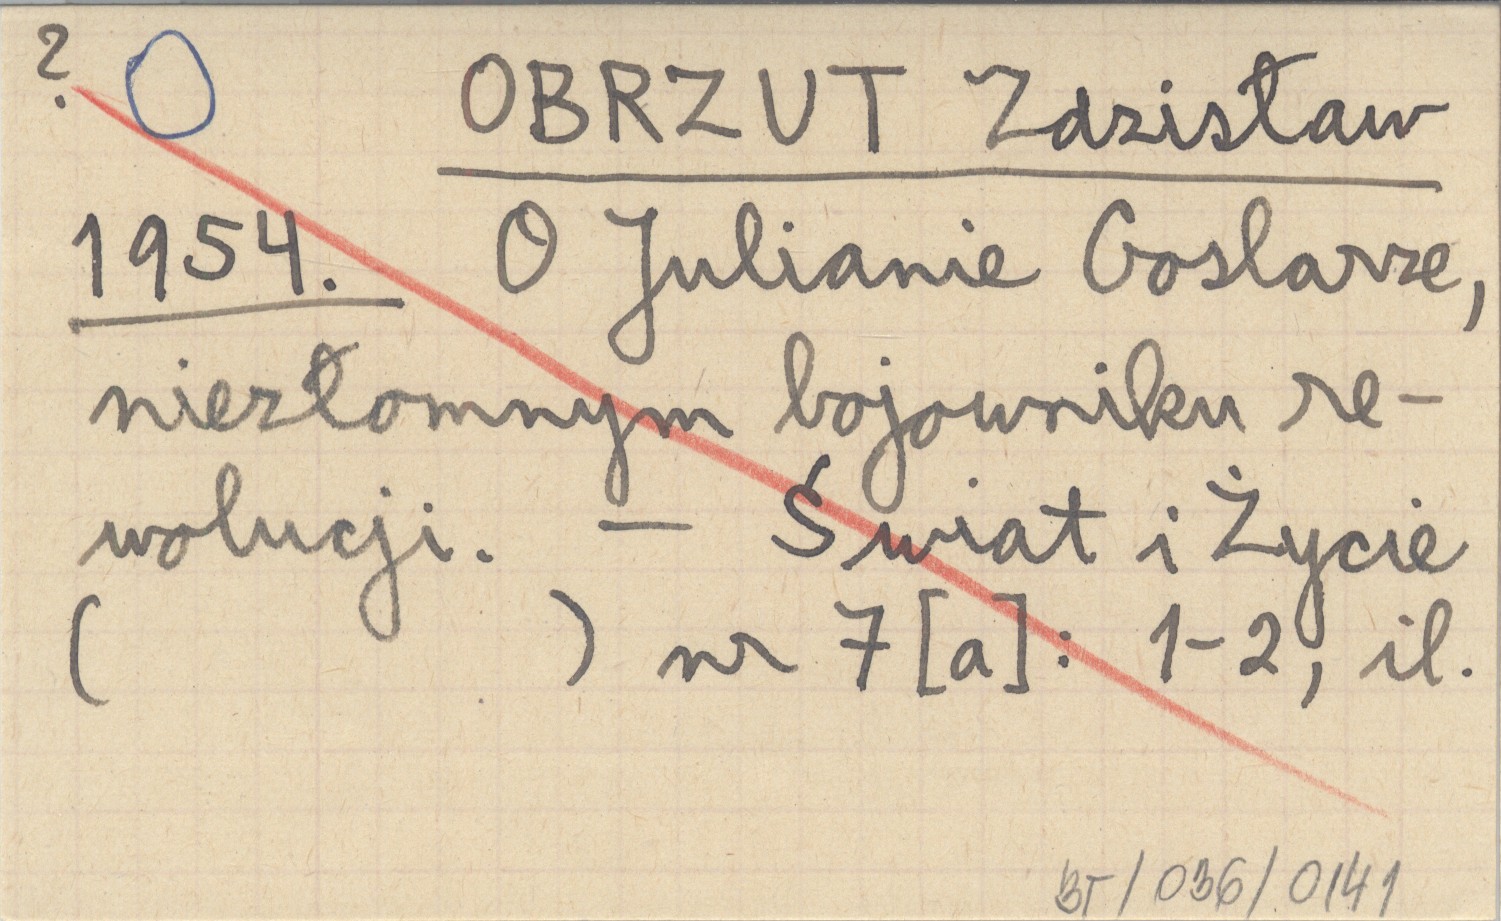 ? O OBRZUT Zdzisław
1954. O Julianie Goslarze,
niezłomnym bojowniku re-
wolucji. — Świat i Życie
( ) nr 7 [a]: 1-2, il.
BT/036/0141